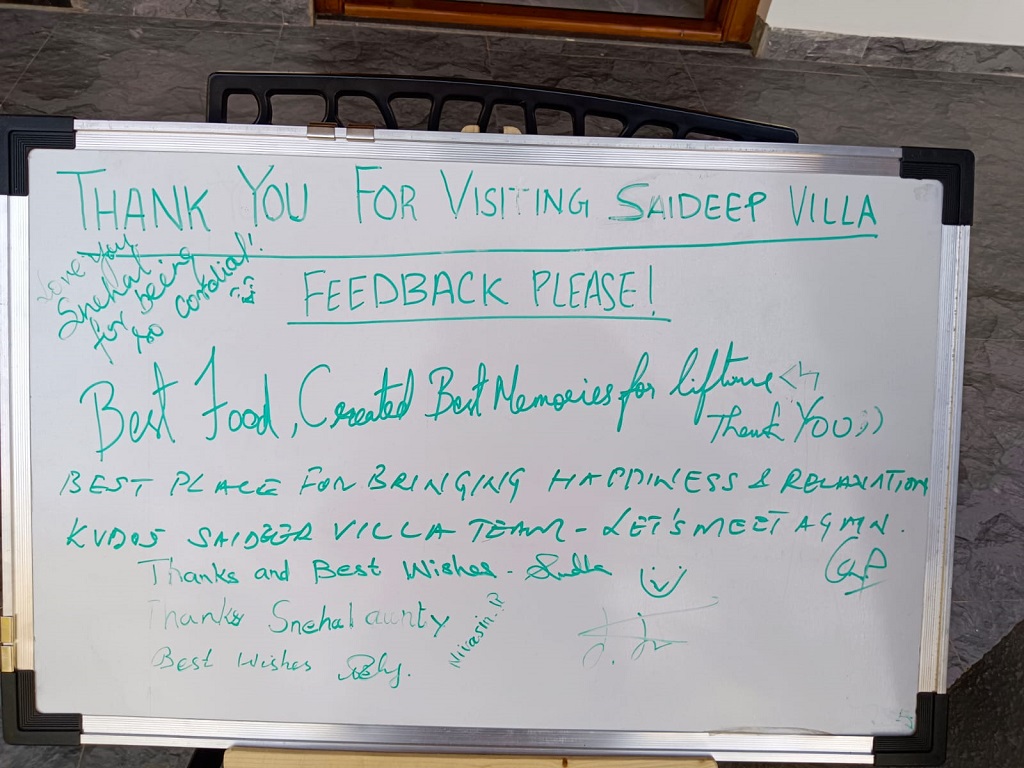 THANK YOU FOR VISITING SAIDEEP VILLA
FEEDBACK PLEASE!
Love you
Snehal
for being
so cordial!!
Best Food, Created Best Memories for liftime
Thank YOU :))
BEST PLACE FOR BRINGING HAPPINESS & RELAXATION
KUDOS SAIDEEP VILLA TEAM - LET'S MEET AGAIN.
Thanks and Best Wishes -
Thanks Snehal aunty
Best Wishes